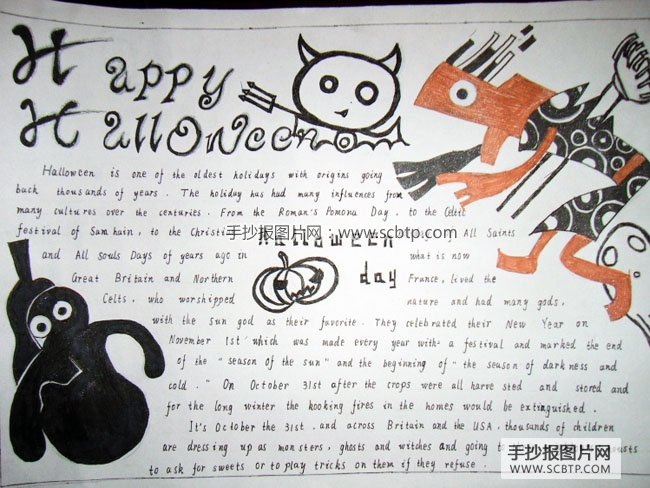 Happy
Halloween
Halloween is one of the oldest holidays with origins going
back thousands of years. The holiday has had many influences from
many cultures over the centuries. From the Roman's Pomona Day, to the Celtic
festival of Samhain, to the Christi All Saints
手抄报图片网：www.scbtp.com
Halloween
day
and All Souls Days of years ago in what is now
Great Britain and Northern France, lived the
Celts, who worshipped nature and had many gods,
with the sun god as their favorite. They celebrated their New Year on
November 1st which was made every year with a festival and marked the end
of the "season of the sun" and the beginning of "the season of darkness and
cold." On October 31st after the crops were all harve sted and stored and
for the long winter the kooking fires in the homes would be extinguished.
It's October the 31st. and across Britain and the USA, thousands of children
are dressing up as monsters, ghosts and witches and going to
to ask for sweets or to play tricks on them if they refuse.
手抄报图片网
WWW.SCBTP.COM